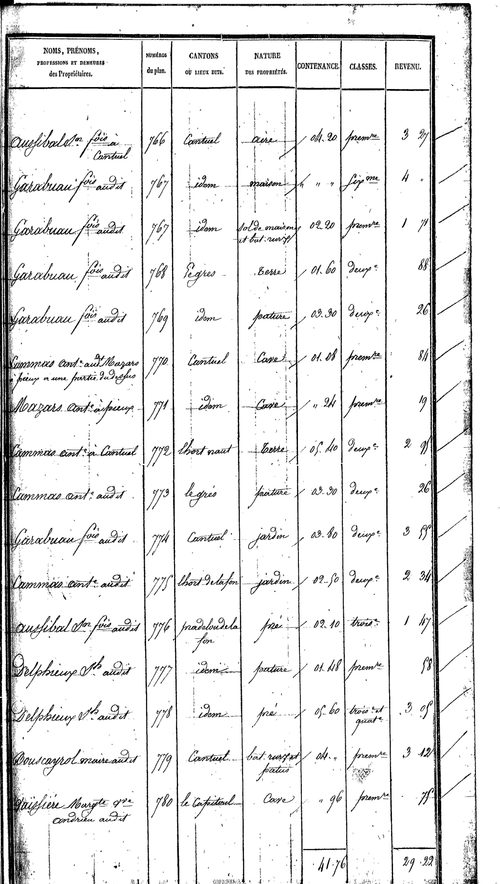 NOMS, PRÉNOMS, PROFESSIONS ET DEMEURES des Propriétaires. NUMÉROS du plan. CANTONS OU LIEUX DITS. NATURE DES PROPRIÉTÉS. CONTENANCE. CLASSES. REVENU.
fois à Cantuel 766 Cantuel aire 04.20 premre 3 27
Garabuau fois audit 767 idem maison " " " sixme 4 "
Garabuau fois audit 767 idem sol de maison et bat. rural 02.20 premre 1 71
Garabuau fois audit 768 Terre 01.60 deuxe 88
Garabuau fois audit 769 idem pature 03.30 deuxe 26
Cammas ant. audt Mazars 770 Cantuel Cave 01.08 premre 84
à pieux a une partie du dessus
Mazars ant. à pieux 771 idem Cave " 24 premre 19
Cammas ant. a Cantuel 772 lhort naut Terre 05.40 deuxe 2
Cammas ant. audit 773 le grés pature 03.30 deuxe 26
Garabuau fois audit 774 Cantuel jardin 03.80 deuxe 3
Cammas ant. audit 775 lhort de la fon jardin 02.50 deuxe 2 34
fois audit 776 pradelou de la fon pré 02.10 troise 1 47
Delphieux audit 777 idem pature 01.48 premre 58
Delphieux audit 778 idem pré 05.60 troise et quate 3 05
Bouscayrol maire audit 779 Cantuel bat. rural et patus 04. " premre 3 12
Margte vve 780 Cave " 96 premre 75
andrieu audit
41.76 29.22